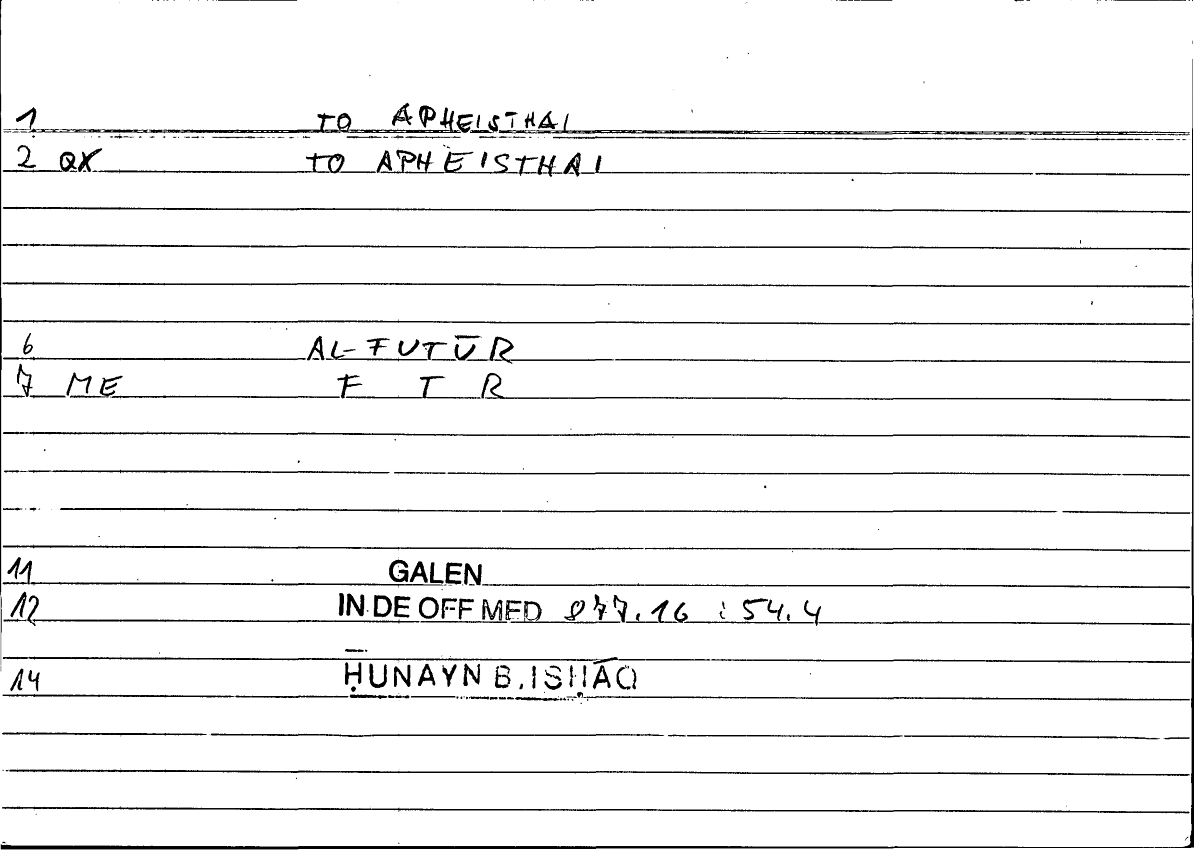 1 TO APHEISTHAI
2 QX TO APHEISTHAI
6 AL-FUTŪR
7 ME F T R
11 GALEN
12 IN DE OFF MED 877.16 : 54.4
14 ḤUNAYN B. ISḤĀQ